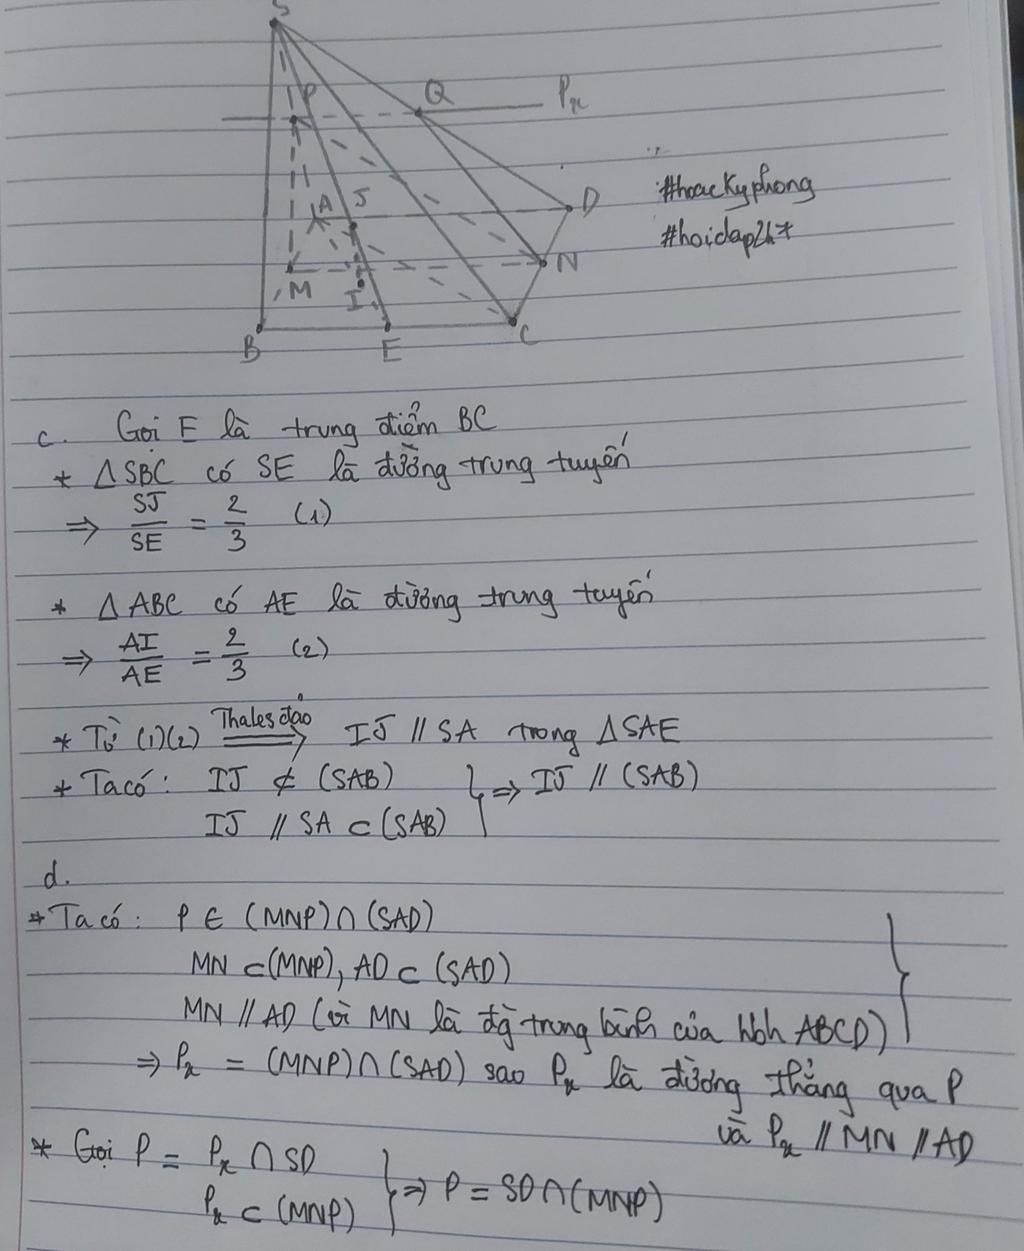 S
P Q Px
A J D
#hoackyphong
#hoidap247
M I N
B E C
c. Gọi E là trung điểm BC
* ΔSBC có SE là đường trung tuyến
⇒ SJ/SE = 2/3 (1)
* ΔABC có AE là đường trung tuyến
⇒ AI/AE = 2/3 (2)
* Từ (1)(2) Thales đảo ⟹ IJ // SA trong ΔSAE
* Ta có: IJ ⊄ (SAB) } ⇒ IJ // (SAB)
IJ // SA ⊂ (SAB)
d.
* Ta có: P ∈ (MNP) ∩ (SAD)
MN ⊂ (MNP), AD ⊂ (SAD)
MN // AD (vì MN là đg trung bình của hbh ABCD) }
⇒ Px = (MNP) ∩ (SAD) sao Px là đường thẳng qua P
và Px // MN // AD
* Gọi P = Px ∩ SD
Px ⊂ (MNP) } ⇒ P = SD ∩ (MNP)